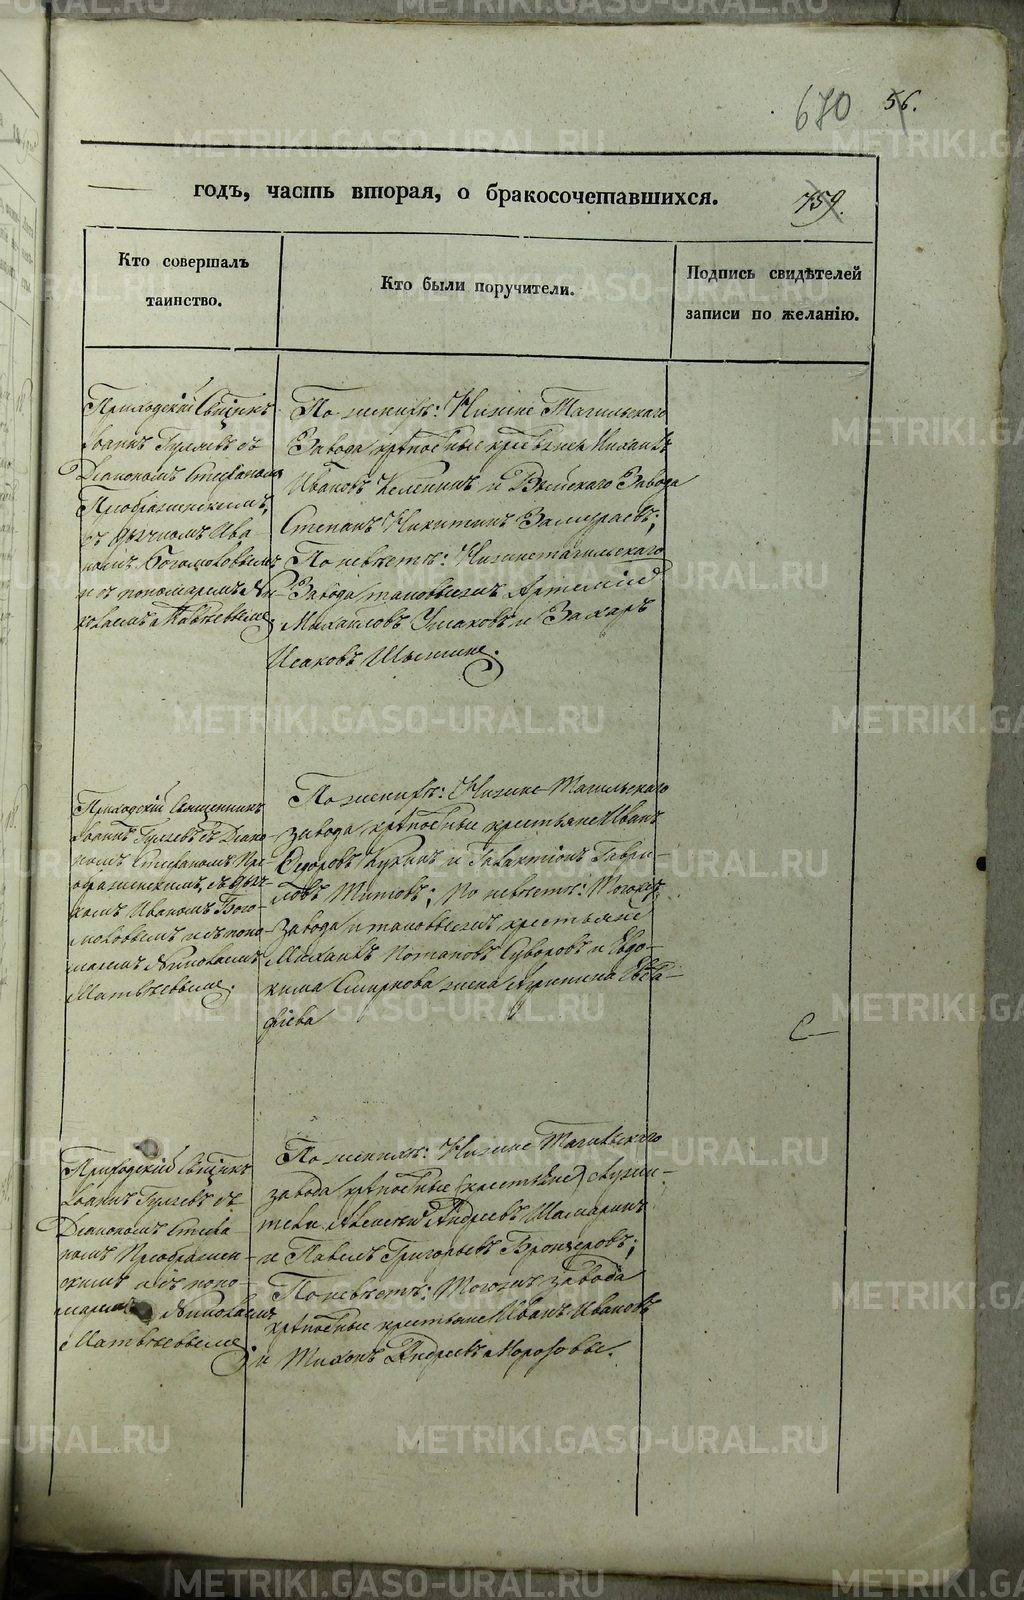 680 56.
годъ, часть вторая, о бракосочетавшихся. 759.
Кто совершалъ
таинство.
Кто были поручители.
Подпись свидѣтелей
записи по желанію.
Приходскій Свщнкъ
Іоаннъ Гуляевъ съ
Діакономъ Стефаномъ
Преображенскимъ,
съ дьячкомъ Ива-
номъ Богомоловымъ
и съ пономаремъ Ни-
колаемъ Матвеевымъ
По женихѣ: Нижне Тагильскаго
Завода крѣпостные крестьяне Михаилъ
Ивановъ и Выйскаго Завода
Степанъ Никитинъ
По невѣстѣ: Нижнетагильскаго
Завода таковыежъ Артемій
Михайловъ Ушаковъ и Захаръ
Исаковъ
Приходскій Священникъ
Іоаннъ Гуляевъ съ Діако-
номъ Стефаномъ Пре-
ображенскимъ, съ дьяч-
комъ Иваномъ Бого-
моловымъ и съ поно-
маремъ Николаемъ
Матвѣевымъ.
По женихѣ: Нижне Тагильскаго
завода крѣпостные крестьяне Иванъ
Ѳедоровъ Кукинъ и Галактіонъ Гаври-
ловъ Титовъ; По невѣстѣ: Тогожъ
завода и таковыежъ крестьяне
Михаилъ Потаповъ Суворовъ и Евдо-
кима Смирнова жена Агрипина Евста-
фіева
С
Приходскій Свщнкъ
Іоаннъ Гуляевъ съ
Діакономъ Стефа
номъ Преображен-
скимъ и съ поно-
маремъ Николаемъ
Матвѣевымъ
По женихѣ: Нижне Тагильскаго
завода крѣпостные (крестьяне) служи-
тели Андреевъ Шамаринъ
и Павелъ Григорьевъ Бронзеровъ;
По невѣстѣ: Тогожъ завода
крѣпостные крестьяне Иванъ Ивановъ
и Тихонъ Андреевъ Морозовы.
METRIKI.GASO-URAL.RU